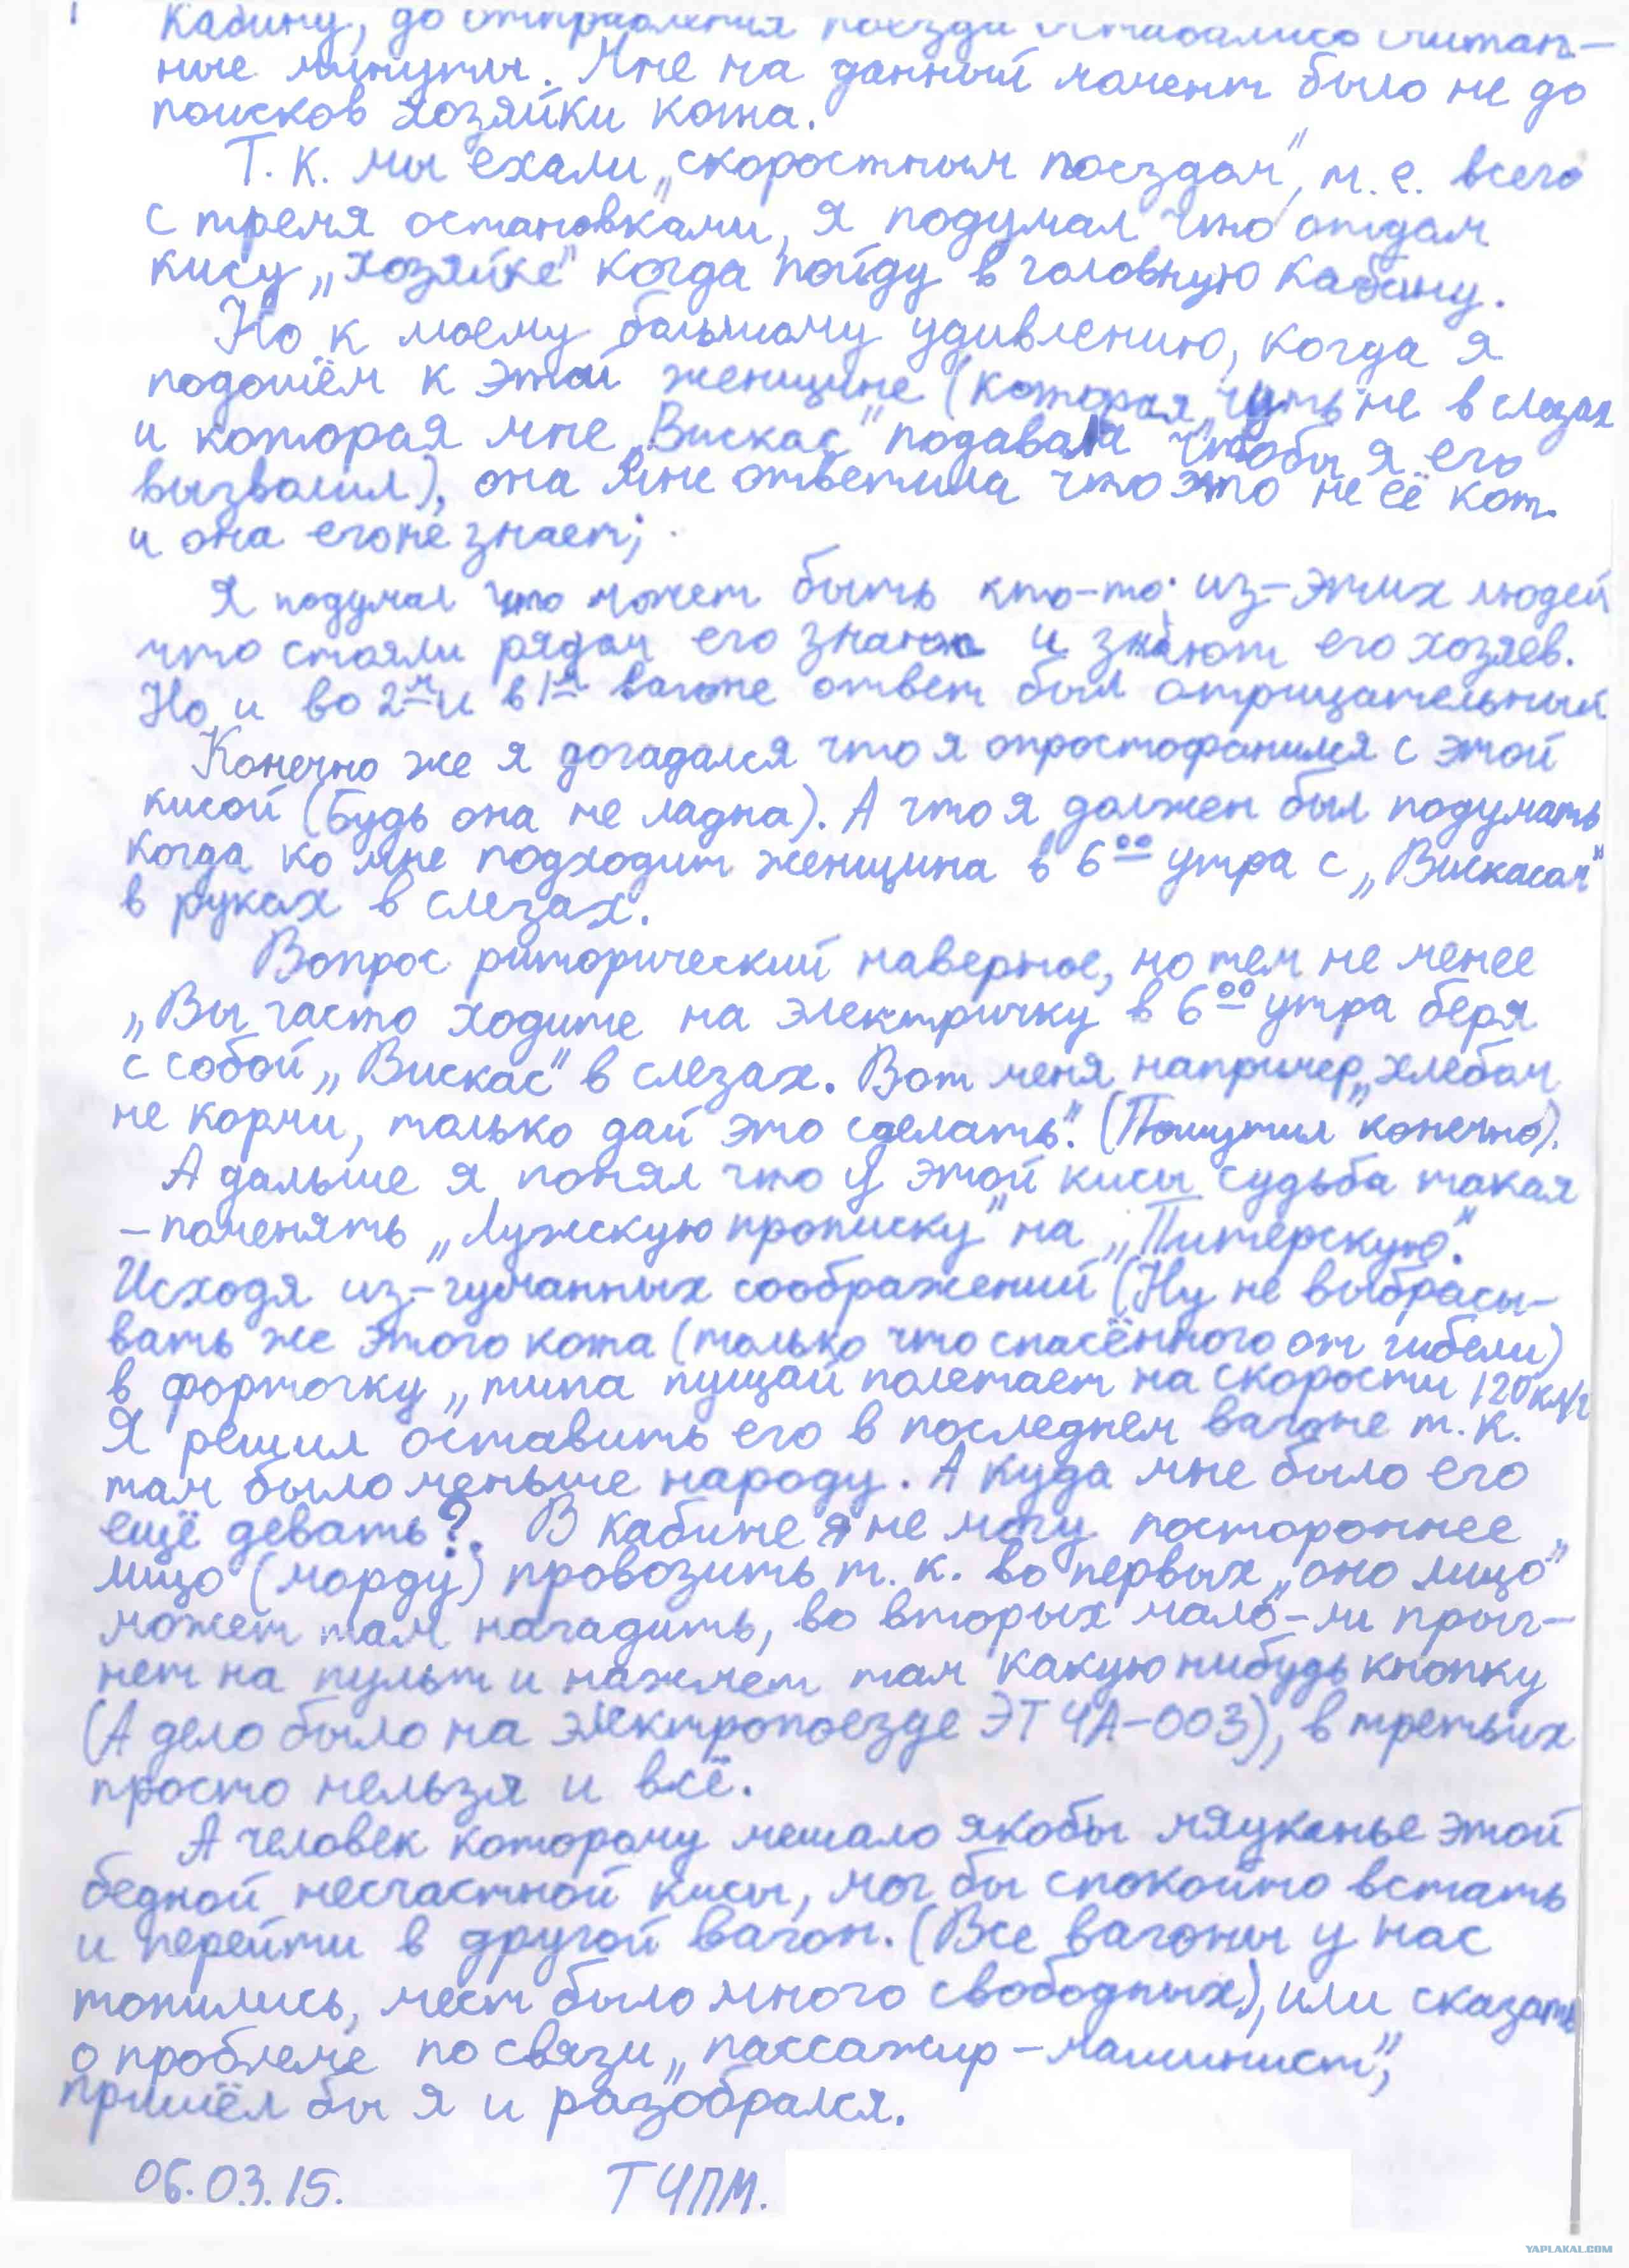 кабину, до отправления поезда оставались считан-
ные минуты. Мне на данный момент было не до
поисков хозяйки кота.
Т.к. мы ехали „скоростным поездом", т.е. всего
с тремя остановками, я подумал что отдам
кису „хозяйке" когда пойду в головную кабину.
Но к моему большому удивлению, когда я
подошёл к этой женщине (которая чуть не в слезах
и которая мне „Вискас" подавала чтобы я его
вызволил), она мне ответила что это не её кот.
и она его не знает;
Я подумал что может быть кто-то из-этих людей
что стояли рядом его знают и знают его хозяев.
Но и во 2м и в 1м вагоне ответ был отрицательный
Конечно же я догадался что я опростофанился с этой
кисой (Будь она не ладна). А что я должен был подумать
когда ко мне подходит женщина в 6 00 утра с „Вискасом"
в руках в слезах.
Вопрос риторический наверное, но тем не менее
„Вы часто ходите на электричку в 6 00 утра беря
с собой „Вискас" в слезах. Вот меня например „хлебом
не корми, только дай это сделать". (Пошутил конечно).
А дальше я понял что у этой кисы судьба такая
– поменять „Лужскую прописку" на „Питерскую".
Исходя из-гуманных соображений (Ну не выбрасы-
вать же этого кота (только что спасённого от гибели)
в форточку „типа пущай полетает на скорости 120 км/ч
Я решил оставить его в последнем вагоне т.к.
там было меньше народу. А куда мне было его
ещё девать?. В кабине я не могу постороннее
лицо (морду) провозить т.к. во первых „оно лицо"
может там нагадить, во вторых мало-ли прыг-
нет на пульт и нажмет там какую нибудь кнопку
(А дело было на электропоезде ЭТ4А-003), в третьих
просто нельзя и всё.
А человек которому мешало якобы мяуканье этой
бедной несчастной кисы, мог бы спокойно встать
и перейти в другой вагон. (Все вагоны у нас
топились, мест было много свободных), или сказать
о проблеме по связи „пассажир – машинист",
пришёл бы я и разобрался.
06.03.15. ТЧПМ.
YAPLAKAL.COM